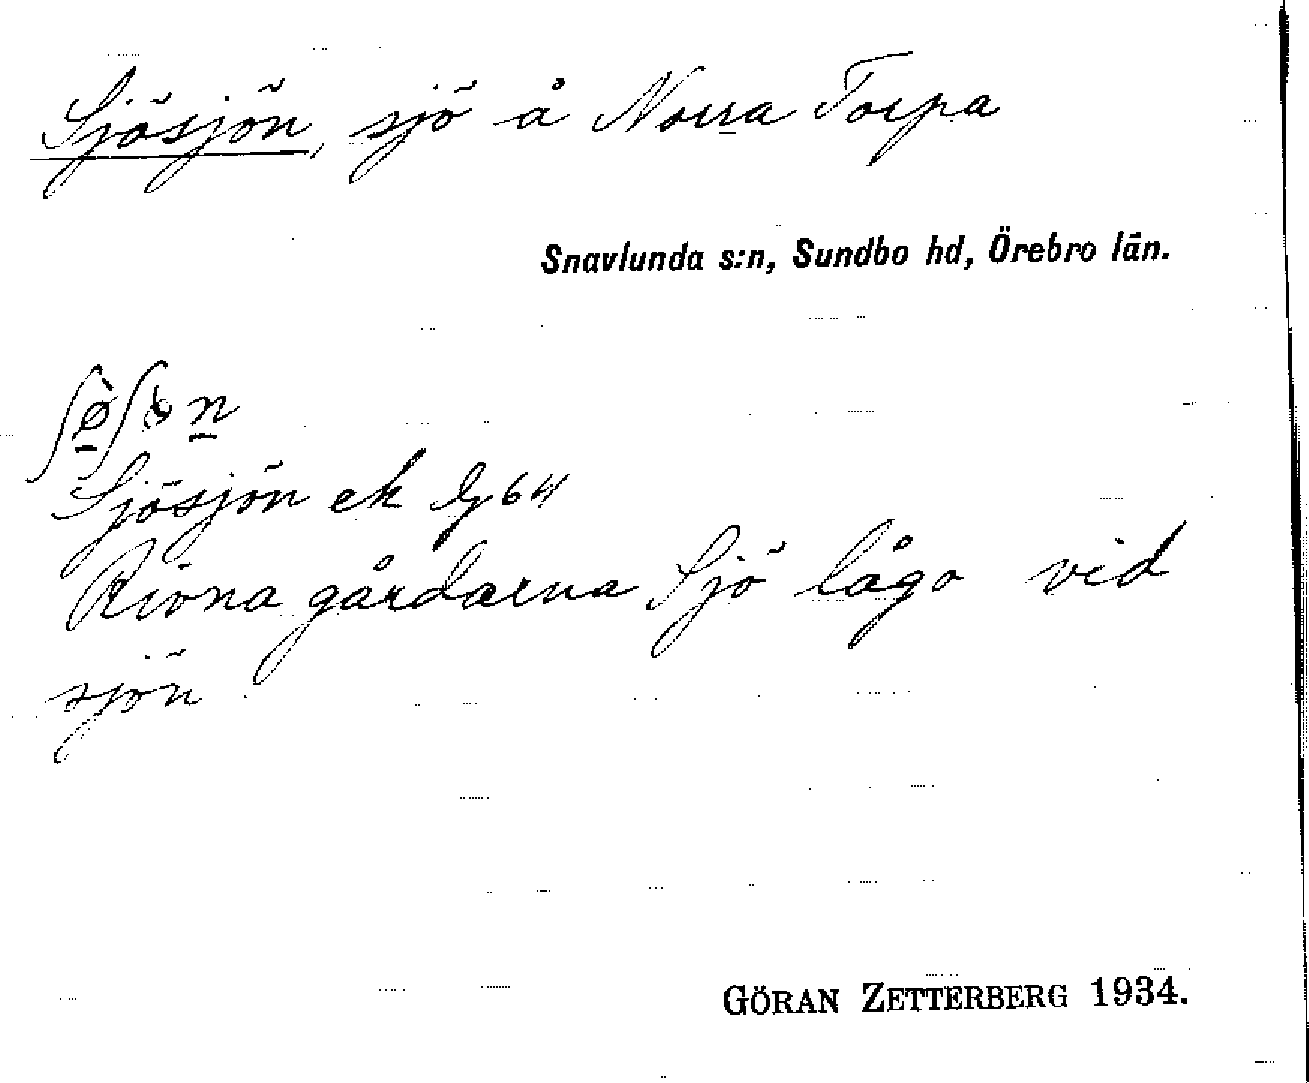 Sjösjön, sjö å Norra Torpa
Snavlunda s:n, Sundbo hd, Örebro län.
Sjösjön ek 64
Rivna gårdarna Sjö lågo vid
sjön.
GÖRAN ZETTERBERG 1934.